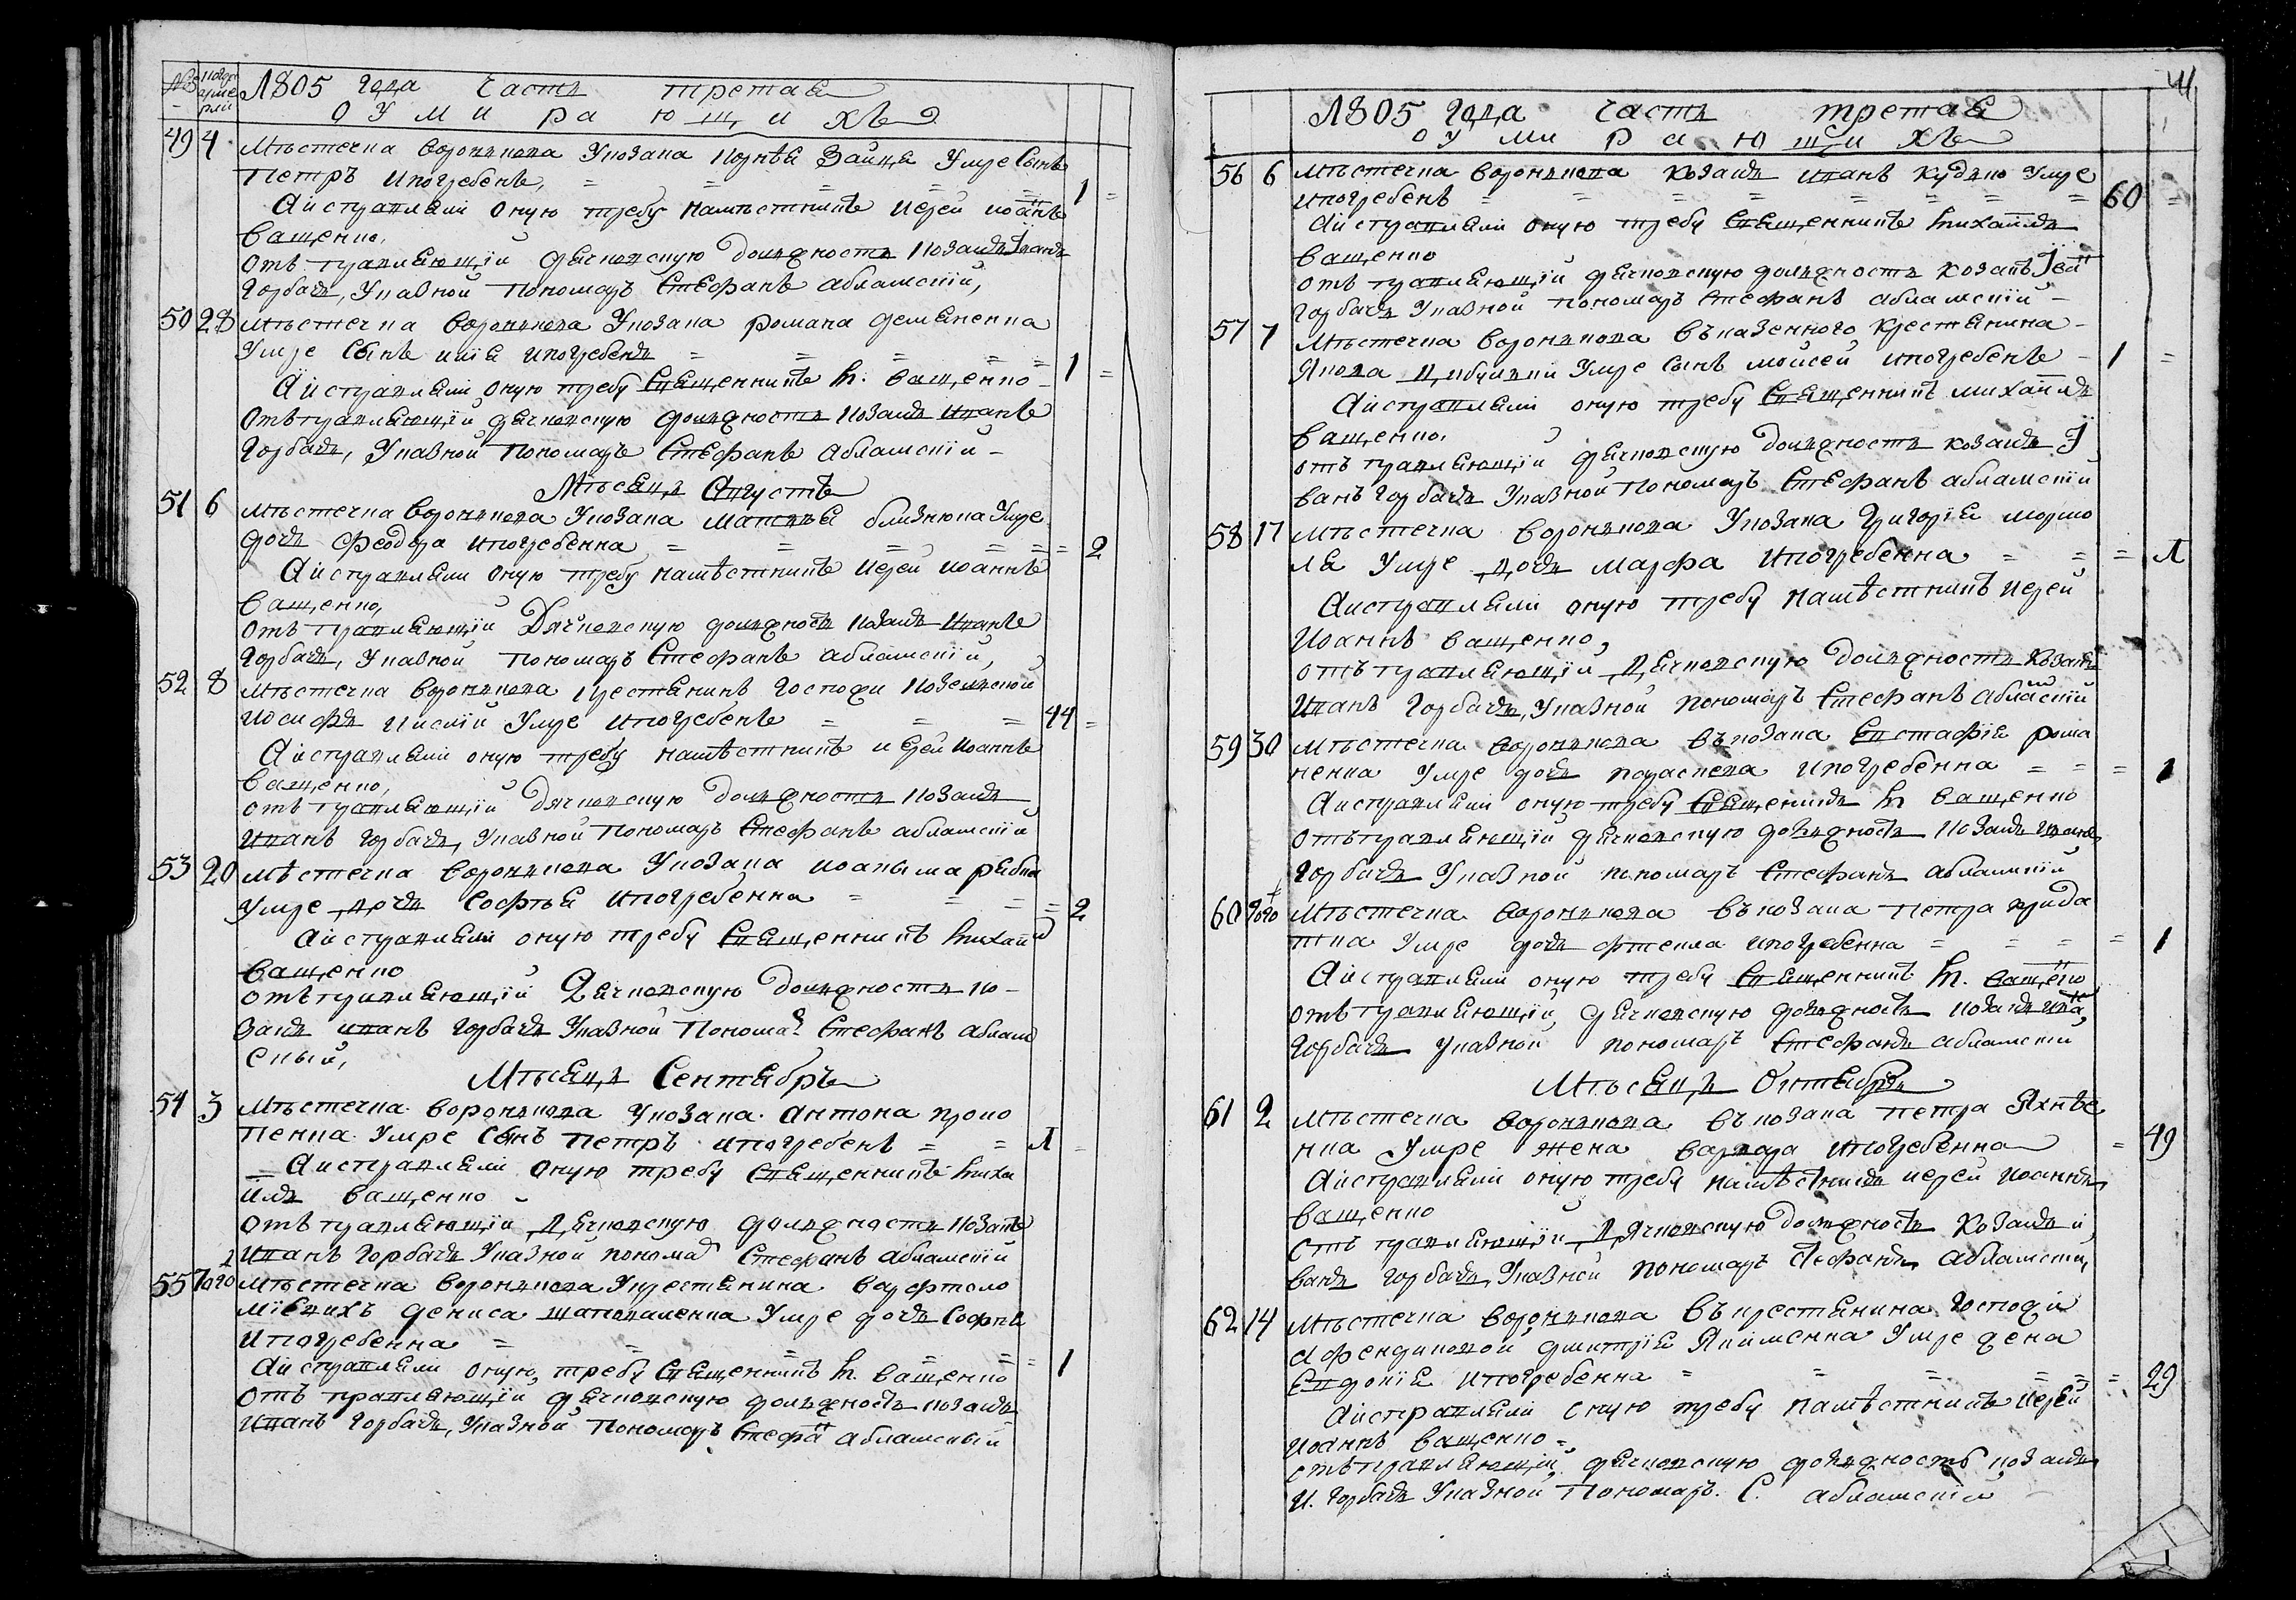 № когда умерли 1805 года часть третая
о умирающихъ
49 4 Мѣстечка Воронкова Укозака Корнѣя Зайця Умре Сынъ
Петръ Ипогребенъ, = = = = = 1 =
Аисправляли оную требу Намѣстникъ Иерей Иоаннъ
Ващенко,
Отъправляющій дячковскую должность Козакъ Иванъ
Горбачь, Указной Пономарь Стефанъ Абламскій,
50 28 Мѣстечка Воронкова Укозака Романа Демяненка
Умре Сынъ Илія Ипогребенъ = = = = 1 =
Аисправляли оную требу Священникъ М. Ващенко
Отъправляющій дячковскую должность Козакъ Иванъ
Горбачь, Указной Пономарь Стефанъ Абламскій
Мѣсяць Августъ
51 6 Мѣстечка Воронкова Укозака Матвѣя Близнюка Умре
дочь Феодора Ипогребенна = = = = = = 2
Аисправляли оную требу Намѣстникъ Иерей Иоаннъ
Ващенко,
Отъправляющій Дячковскую должность Козакъ Иванъ
Горбачь, Указной Пономарь Стефанъ Абламскій,
52 8 Мѣстечка Воронкова крестянинъ Господи
Иосифъ Умре Ипогребенъ = = = 44 =
Аисправляли оную требу Намѣстникъ Иерей Иоаннъ
Ващенко,
Отъправляющій Дячковскую должность Козакъ
Иванъ Горбачь, Указной Пономарь Стефанъ Абламскій
53 20 Мѣстечка Воронкова Укозака Иоакыма Рябка
Умре дочь Софья Ипогребенна = = = = 2
Аисправляли оную требу Священникъ Михаил
Ващенко
Отъправляющій Дячковскую должность Ко-
закъ Иванъ Горбачь Указной Понома Стефанъ Аблам
скый,
Мѣсяць Сентябрь
54 3 Мѣстечка Воронкова Укозака Антона Проко
пенка Умре Сынъ Петръ Ипогребенъ = = 1 =
= Аисправляли оную требу Священникъ Миха
илъ Ващенко
Отъправляющій Дячковскую должность Козакъ
Иванъ Горбачь Указной Понома Стефанъ Абламскій
55 того Мѣстечка Воронкова Укрестянина Варфоло
міевихъ Дениса Шаповаленка Умре дочь Софія
Ипогребенна = = = = = = 1
Аисправляли оную требу Священникъ М. Ващенко
Отъправляющій дячковскую должность Козакъ
Иванъ Горбачь, Указной Пономарь Стефа Абламскый
41
1805 года часть третая
о умирающихъ
56 6 Мѣстечка Воронкова Козакъ Иванъ Умре
Ипогребенъ = = = = = = 60 =
Аисправляли оную требу Священникъ Михаилъ
Ващенко
Отъправляющій дячковскую должность Козакъ Іва
Горбачь Указной Пономарь Стефанъ Абламскій
57 7 Мѣстечка Воронкова Въказенного Крестянина
Якова Умре Сынъ Мойсей Ипогребенъ 1 =
Аисправляли оную требу Священникъ Михаилъ
Ващенко,
Отъправляющій Дячковскую Должность Козакъ І
ванъ Горбачь Указной Пономарь Стефанъ Абламскій
58 17 Мѣстечка Воронкова Укозака Григорія Мормо
ля Умре дочь Марфа Ипогребенна = = = 1
Аисправляли оную требу Намѣстникъ Иерей
Иоаннъ Ващенко,
Отъправляющій Дячковскую Должность Козакъ
Иванъ Горбачь, Указной Пономарь Стефанъ Абламскій
59 30 Мѣстечка Воронкова Въкозака Евстафія Рома
ненка Умре дочь Параскева Ипогребенна = = = 1
Аисправляли оную требу Священникъ М Ващенко
Отъправляющій дячковскую должность Козакъ Иванъ
Горбачь Указной Пономарь Стефанъ Абламскій
60 того Мѣстечка Воронкова Въкозака Петра Прида
тка Умре дочь Фтекла Ипогребенна = = = = 1
Аисправляли оную требу Священникъ М. Ващенко
Отъправляющій дячковскую должность Козакъ Ива
Горбачь Указной Пономарь Стефанъ Абламскій
Мѣсяць Октябрь
61 2 Мѣстечка Воронкова Въкозака Петра Яхнѣе
нка Умре жена Варвара Ипогребенна = 49
Аисправляли оную требу Намѣстникъ Иерей Иоаннъ
Ващенко
Отъправляющій Дячковскую Должность Козакъ И
ванъ Горбачь, Указной Пономарь Стефанъ Абламскій,
62 14 Мѣстечка Воронкова Въкрестянина Господи
Афендиковой Дмитрія Якименка Умре жена
Евдокія Ипогребенна = = = = = = 29
Аисправляли оную требу Намѣстникъ Иерей
Иоаннъ Ващенко =
Отъправляющій дячковскую должность Козакъ
И. Горбачь Указной Пономарь. С. Абламскій